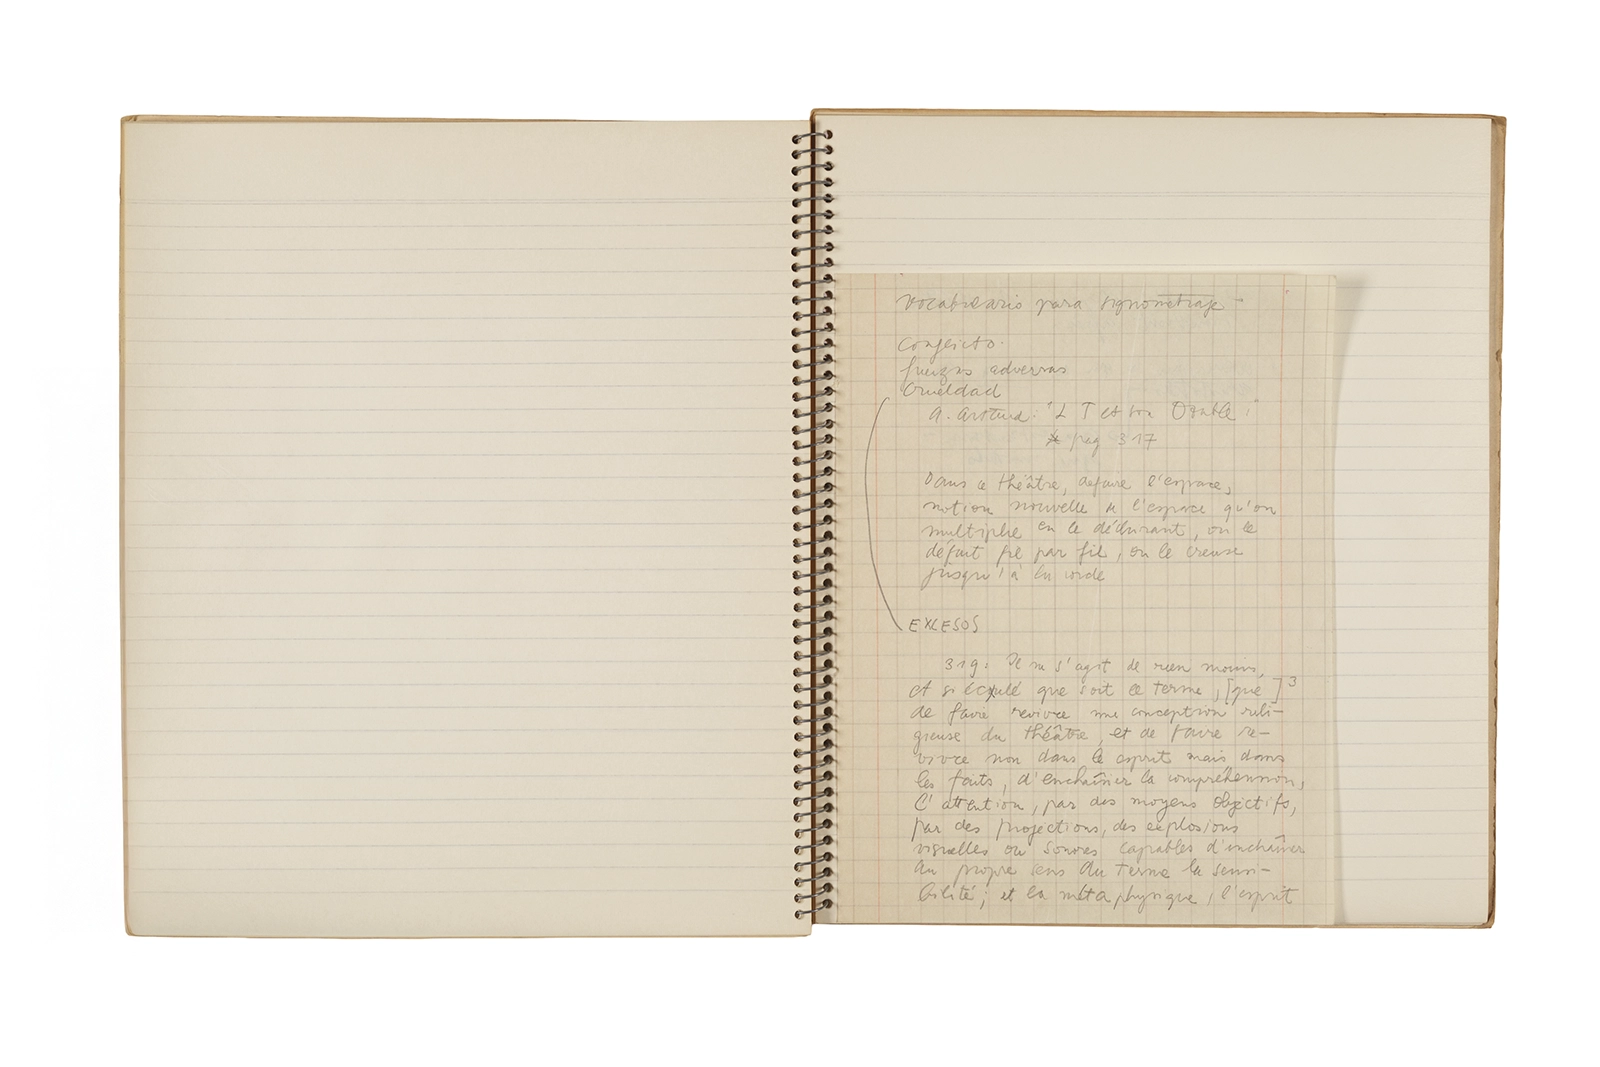 vocabulario para signometraje -
Conflicto.
fuerzas adversas
Crueldad
A. Artaud: "L T et son Double"
pag 317
Dans ce théâtre, defaire l'espace,
notion nouvelle de l'espace qu'on
multiplie en le déchirant, on le
défait fil par fil, on le creuse
jusqu'à la corde
EXCESOS
319: Il ne s'agit de rien moins,
et si éculé que soit ce terme, [que]³
de faire revivre une conception reli-
gieuse du théâtre, et de faire re-
vivre non dans le esprit mais dans
les faits, d'enchaîner la compréhension,
l'attention, par des moyens objectifs,
par des projections, des explosions
visuelles ou sonores capables d'enchaîner
au propre sens du terme la sensi-
bilité; et la métaphysique, l'esprit